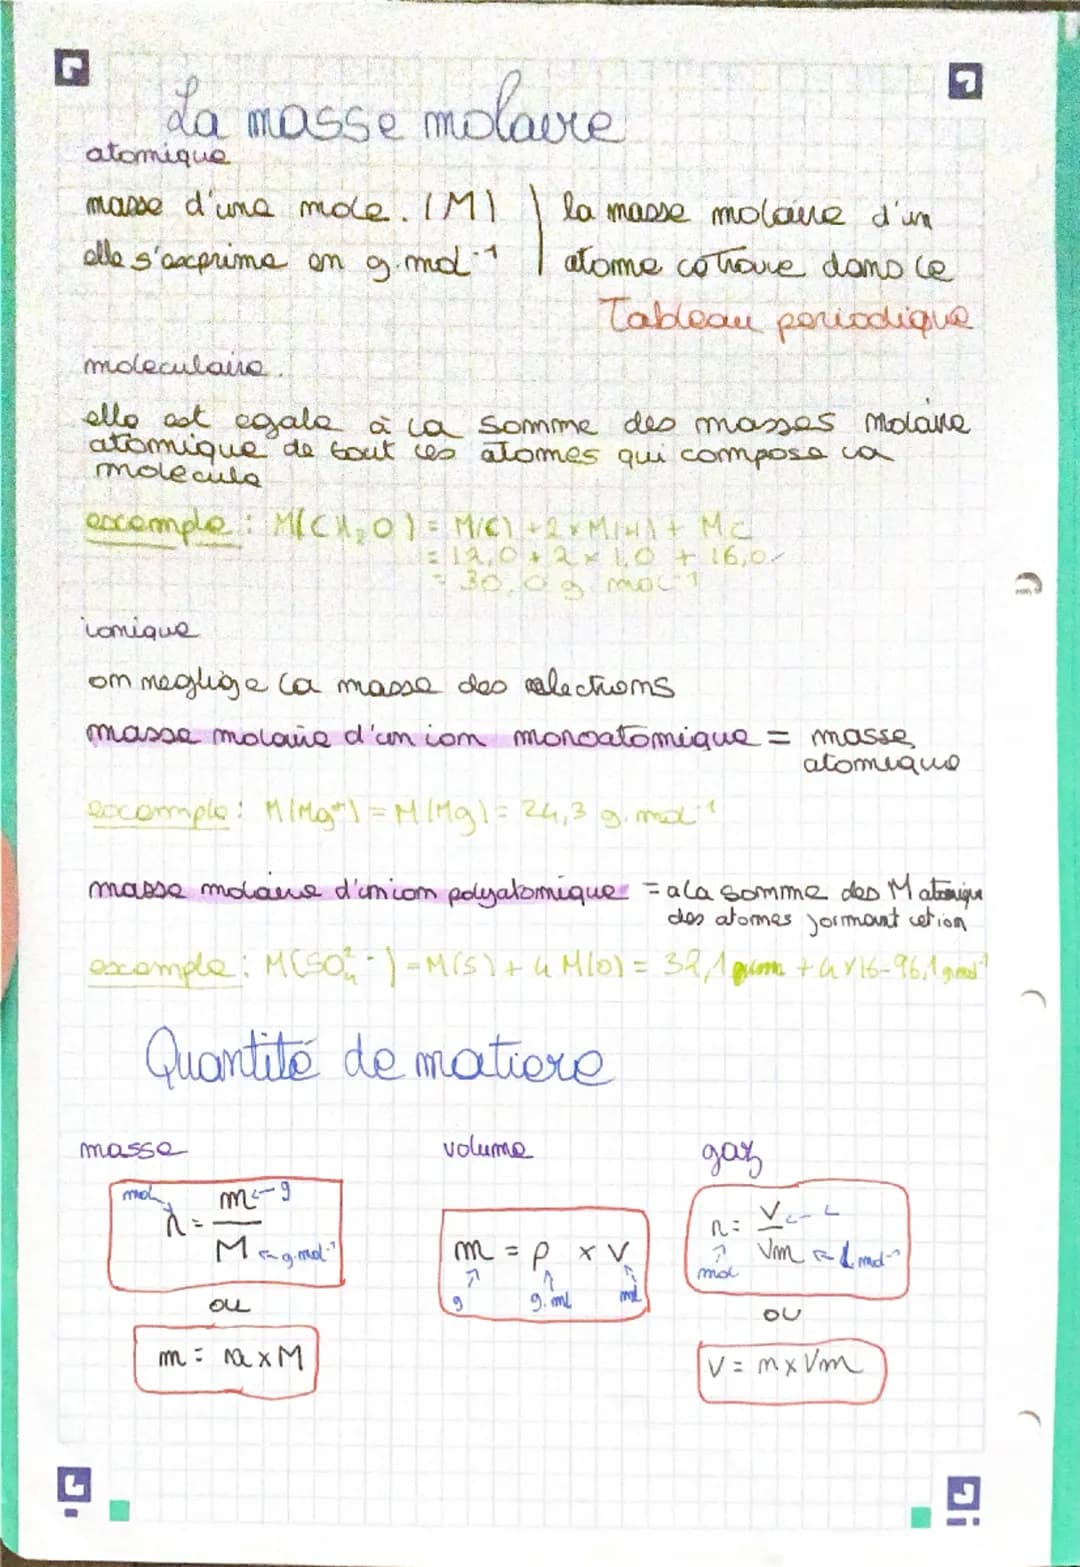 La masse molaire
atomique
masse d'une mole. (M)
elle s'exprime en g.mol⁻¹
la masse molaire d'un
atome ce trouve dans le
Tableau periodique
moleculaire.
elle est egale à la somme des masses molaire
atomique de tout les atomes qui compose la
molecule
exemple : M(CH₂O) = M(C) + 2 × M(H) + MC
= 12,0 + 2 × 1,0 + 16,0
= 30,0 g mol-1
ionique
on neglige la masse des electrons
masse molaire d'un ion monoatomique = masse
atomique
exemple : M(Mg²⁺) = M(Mg) = 24,3 g.mol⁻¹
masse molaire d'un ion polyatomique = a la somme des M atomique
des atomes formant cet ion
exemple : M(SO₄²⁻) = M(S) + 4 M(O) = 32,1 + 4×16-96,1 g.mol⁻¹
Quantité de matiere
masse
volume
gaz
mol n = m ← g
M ← g.mol⁻¹
ou
m = n x M
m = ρ x V
g g.ml ml
n = V ← L
Vm ← L mol⁻¹
mol
ou
V = n x Vm